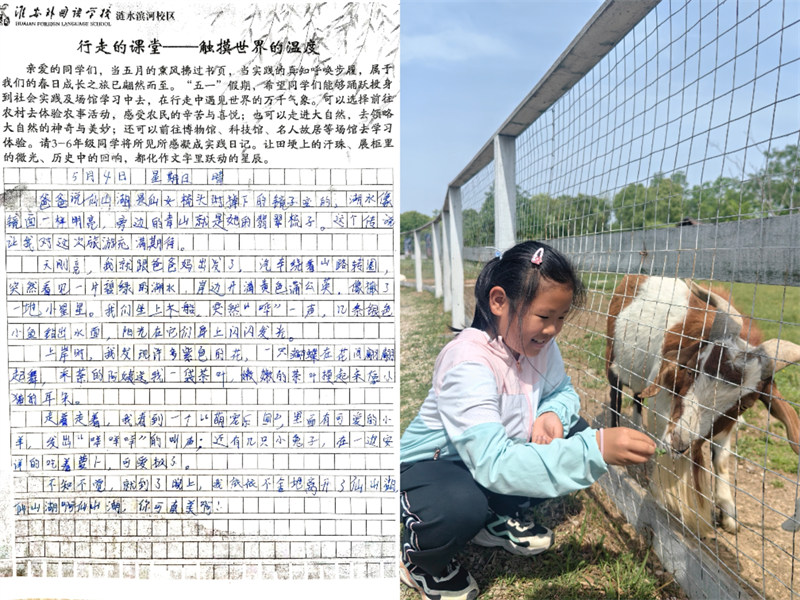 淮安外国语学校 涟水滨河校区
HUAIAN FOREIGN LANGUAGE SCHOOL
行走的课堂——触摸世界的温度
亲爱的同学们，当五月的熏风拂过书页，当实践的真知呼唤步履，属于
我们的春日成长之旅已翩然而至。“五一”假期，希望同学们能够踊跃投身
到社会实践及场馆学习中去，在行走中遇见世界的万千气象。可以选择前往
农村去体验农事活动，感受农民的辛苦与喜悦；也可以走进大自然，去领略
大自然的神奇与美妙；还可以前往博物馆、科技馆、名人故居等场馆去学习
体验。请3-6年级同学将所见所感凝成实践日记。让田埂上的汗珠、展柜里
的微光、历史中的回响，都化作文字里跃动的星辰。
5月4日 星期日 晴
爸爸说仙山湖是仙女梳头时掉下的镜子变的，湖水像
镜面一样明亮，旁边的青山就是她的翡翠梳子。这个传说
让我对这次旅游充满期待。
天刚亮，我就跟爸爸妈出发了，汽车绕着山路转圈，
突然看见一片碧绿的湖水，岸边开满黄色蒲公英，像撒了
一地小星星。我们坐上木船，突然“哗”一声，几条银色
小鱼蹦出水面，阳光在它们身上闪闪发光。
上岸时，我发现许多紫色的花，一只蝴蝶在花间翩翩
起舞，采茶的阿姨送我一袋茶叶，嫩嫩的茶叶摸起来像小
猫的耳朵。
走着走着，我看到一个“萌宠乐园”，里面有可爱的小
羊，发出“咩咩咩”的叫声；还有几只小兔子，在一边安
详的吃着萝卜，可爱极了。
不知不觉，就到了晚上，我依依不舍地离开了仙山湖
仙山湖啊仙山湖，你可真美啊！